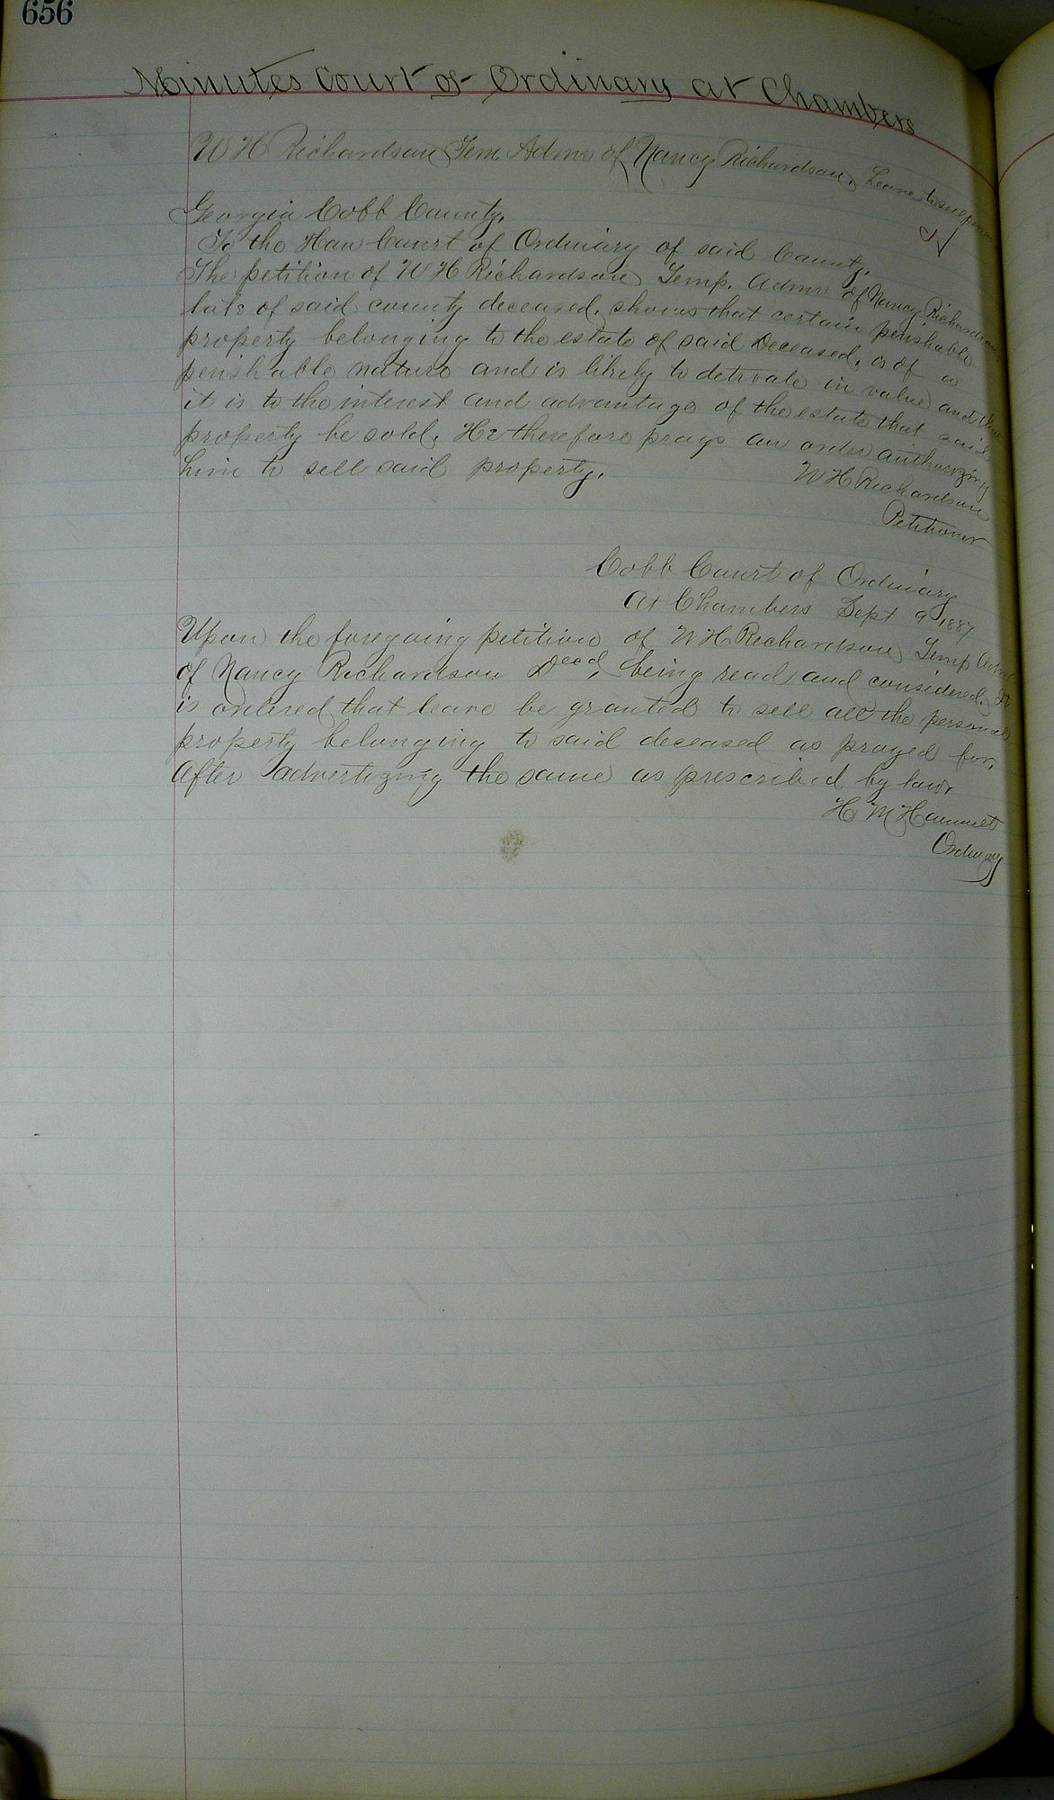 656
Minutes Court of Ordinary at Chambers
W H Richardson Tem Admr of Nancy Richardson, Leave to sell
Georgia Cobb County.
To the Hon Court of Ordinary of said County.
The petition of W H Richardson Temp. Admr of Nancy Richardson
late of said county deceased, shows that certain perishable
property belonging to the estate of said Deceased, is of a
perishable nature and is likely to in value and that
it is to the interest and advantage of the estate that said
property be sold. He therefore prays an order authorizing
him to sell said property.
W H Richardson
Petitioner
Cobb Court of Ordinary
At Chambers Sept 9 1887
Upon the foregoing petition of W H Richardson Temp Admr
of Nancy Richardson Decd, being read and considered, It
is ordered that leave be granted to sell all the personal
property belonging to said deceased as prayed for.
After advertizing the same as prescribed by law.
H M Hammett
Ordinary